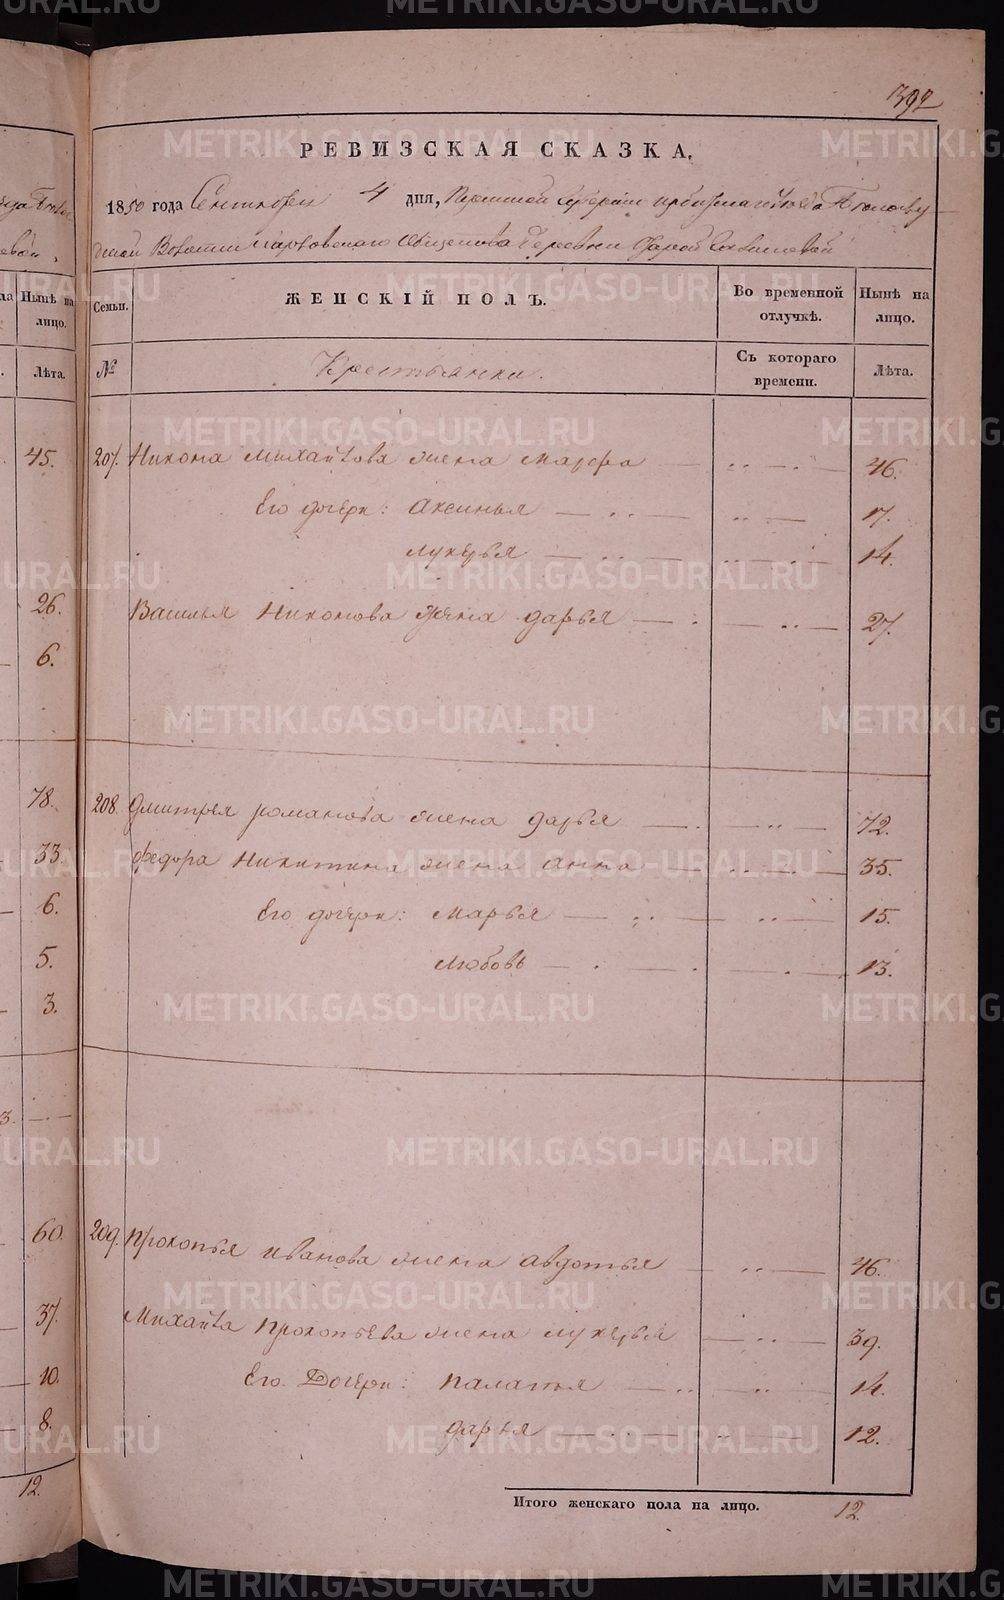 392
РЕВИЗСКАЯ СКАЗКА.
1850 года Сентября 4 дня, Пермской Губернии Ирбитскаго уезда Белослуд
ской Волости общества Деревни
Семьи. ЖЕНСКІЙ ПОЛЪ. Во временной отлучкѣ. Нынѣ на лицо.
№ Крестьянки. Съ котораго времени. Лѣта.
207. Никона Михайлова жена Марфа 46.
Его дочери: Аксинья 17.
Лукерья 14.
Василья Никонова жена Дарья 27.
208. Дмитрея Романова жена Дарья 72.
Федора Никитина жена Анна 35.
Его дочери: Марья 15.
Любовь 13.
209. Прокопья Иванова жена Авдотья 46.
Михайла Прокопьева жена Лукерья 39.
Его Дочери: Палагья 14.
Дарья 12.
Итого женскаго пола на лицо. 12.
Нынѣ на лицо.
Лѣта.
45.
26.
6.
78.
33.
6.
5.
3.
3.
60.
37.
10.
8.
12.
METRIKI.GASO-URAL.RU